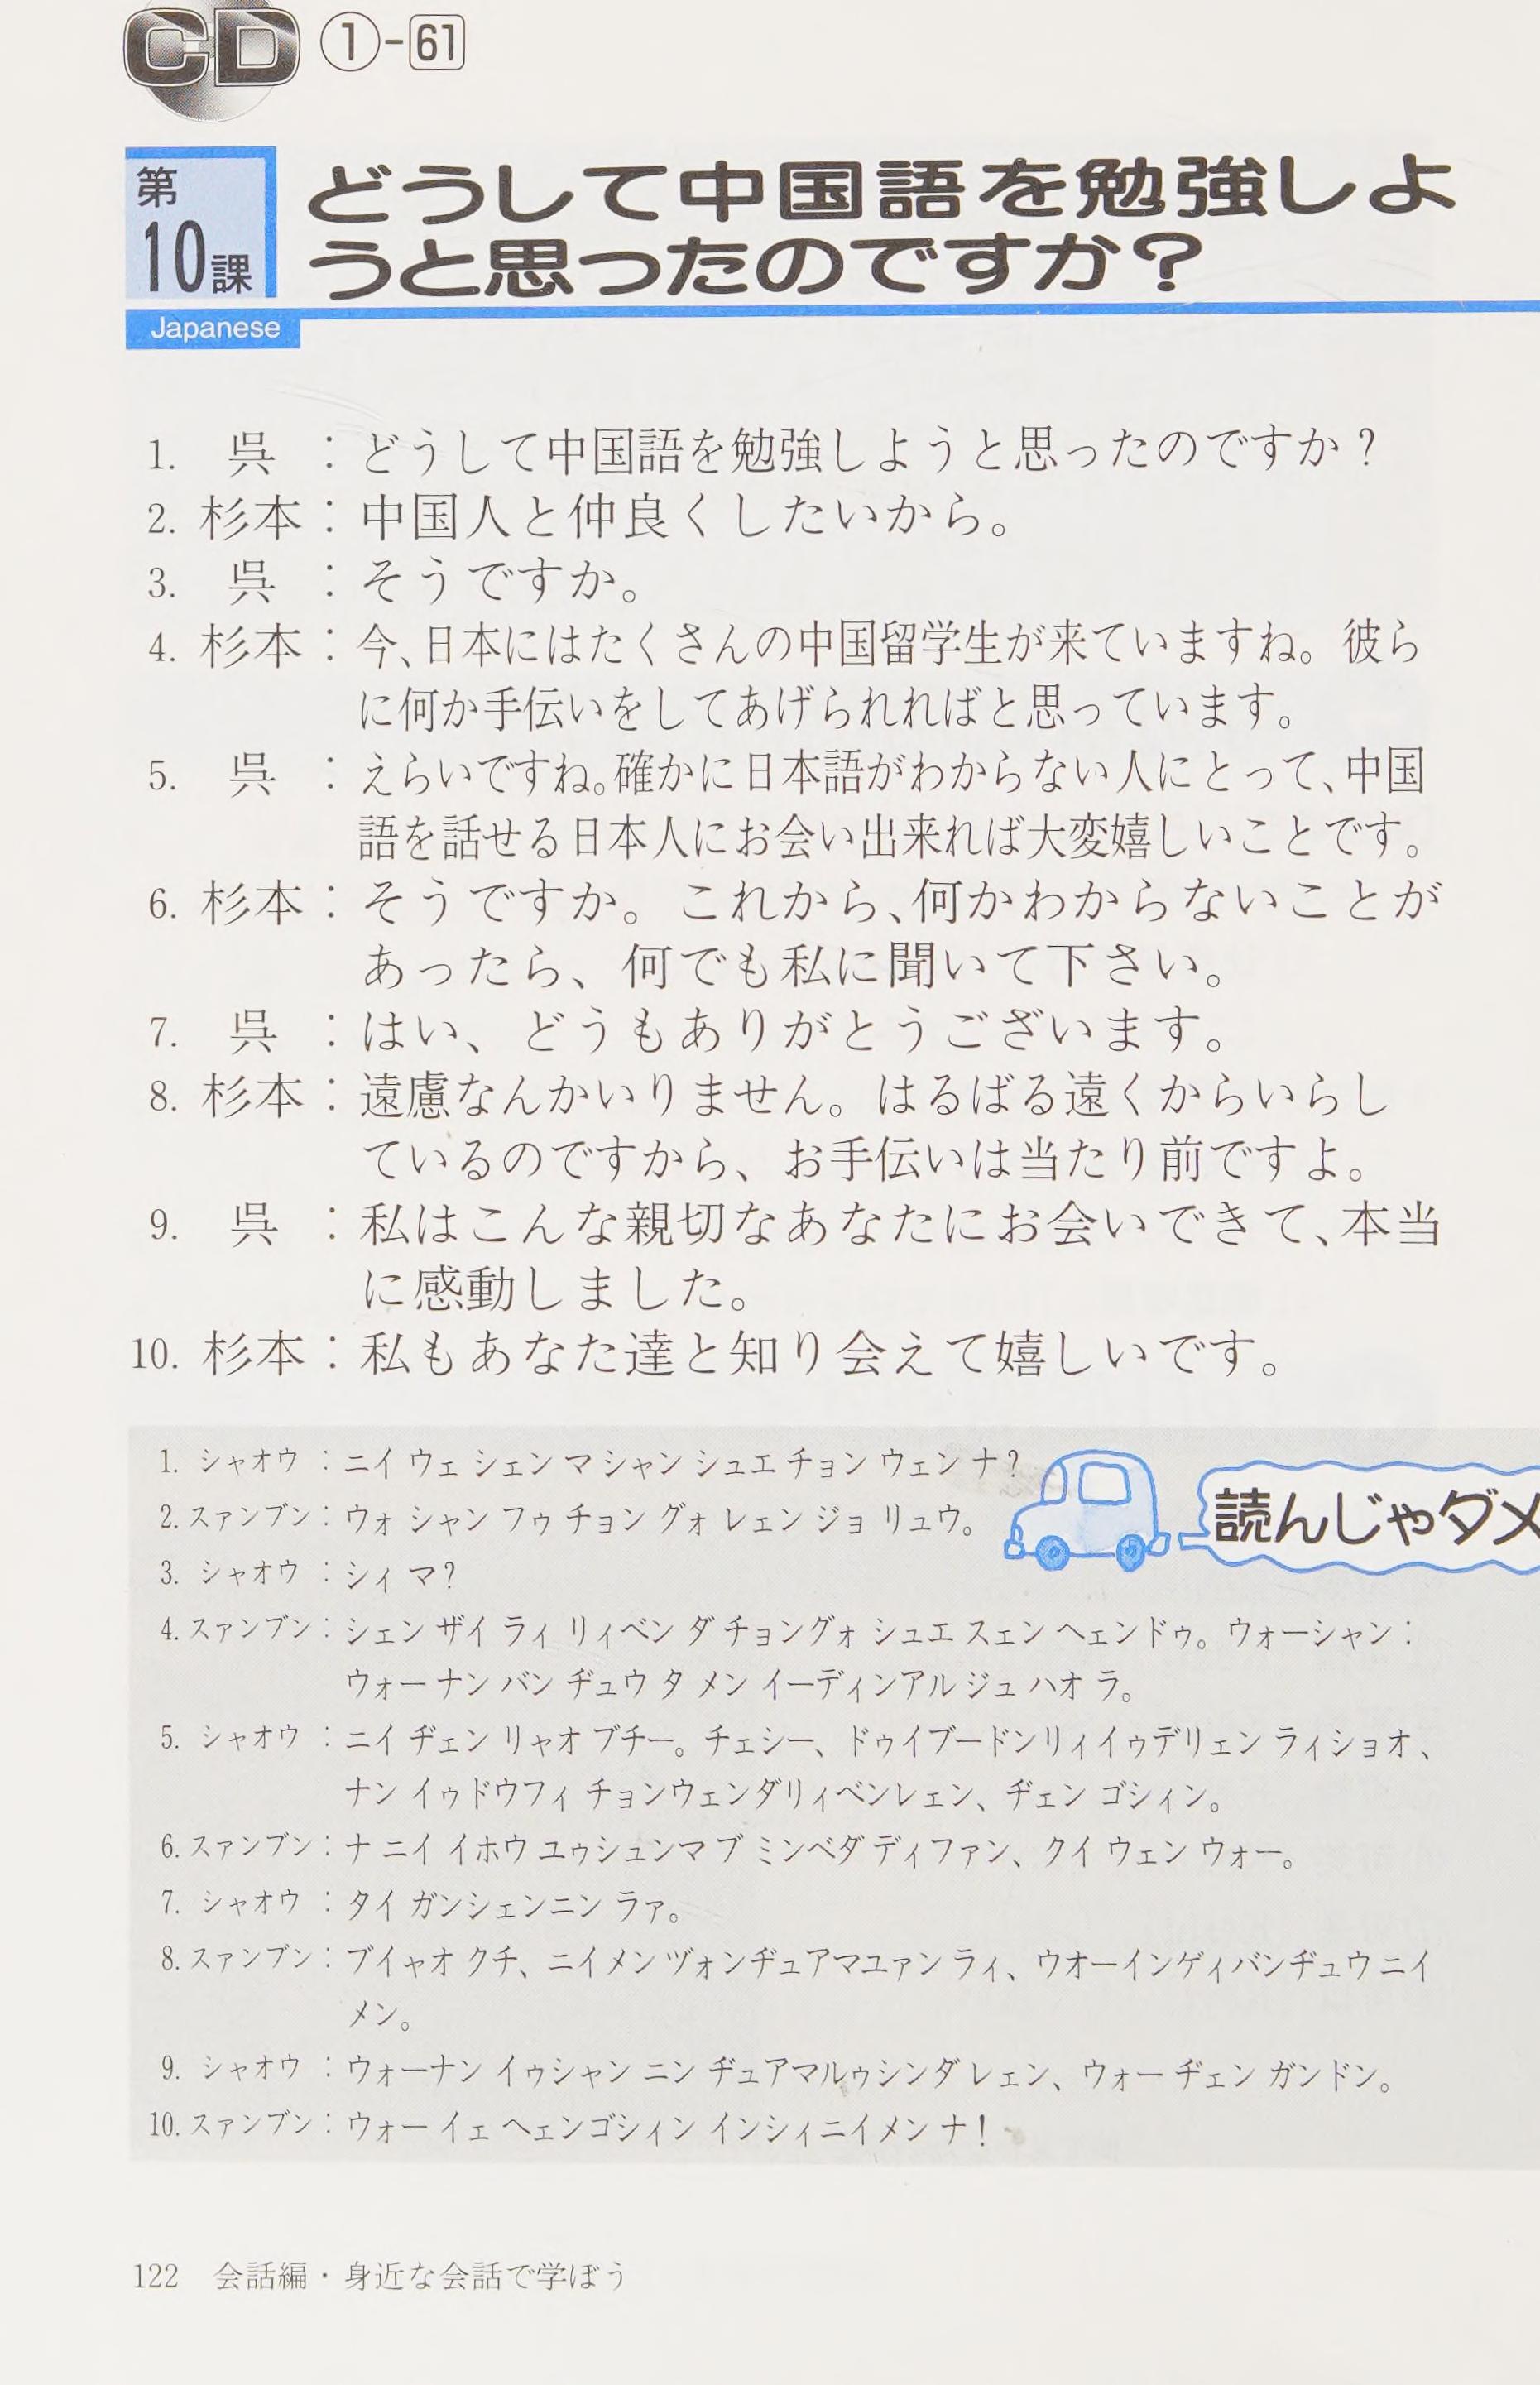 CD ①-61
第10課
どうして中国語を勉強しよ
うと思ったのですか？
Japanese
1. 呉 ：どうして中国語を勉強しようと思ったのですか？
2. 杉本：中国人と仲良くしたいから。
3. 呉 ：そうですか。
4. 杉本：今、日本にはたくさんの中国留学生が来ていますね。彼ら
に何か手伝いをしてあげられればと思っています。
5. 呉 ：えらいですね。確かに日本語がわからない人にとって、中国
語を話せる日本人にお会い出来れば大変嬉しいことです。
6. 杉本：そうですか。これから、何かわからないことが
あったら、何でも私に聞いて下さい。
7. 呉 ：はい、どうもありがとうございます。
8. 杉本：遠慮なんかいりません。はるばる遠くからいらし
ているのですから、お手伝いは当たり前ですよ。
9. 呉 ：私はこんな親切なあなたにお会いできて、本当
に感動しました。
10. 杉本：私もあなた達と知り会えて嬉しいです。
1. シャオウ ：ニイ ウェ シェン マ シャン シュエ チョン ウェン ナ？
2. スァンブン：ウォ シャン フゥ チョン グォ レェン ジョ リュウ。
3. シャオウ ：シィ マ？
4. スァンブン：シェン ザイ ラィ リィベン ダ チョングォ シュエ スェン ヘェンドゥ。ウォーシャン：
ウォーナン バン ヂュウ タ メン イーディンアル ジュ ハオ ラ。
5. シャオウ ：ニイ ヂェン リャオ ブチー。チェシー、ドゥイブードンリィイゥデリェン ラィショオ、
ナン イゥドウフィ チョンウェンダリィベンレェン、ヂェン ゴシィン。
6. スァンブン：ナ ニイ イホウ ユゥシュンマ ブ ミンベダ ディファン、クイ ウェン ウォー。
7. シャオウ ：タイ ガンシェンニン ラァ。
8. スァンブン：ブイャオ クチ、ニイメン ヅォンヂュアマユァン ラィ、ウオーインゲィバンヂュウ ニイ
メン。
9. シャオウ ：ウォーナン イゥシャン ニン ヂュアマルゥシンダ レェン、ウォー ヂェン ガンドン。
10. スァンブン：ウォー イェ ヘェンゴシィン インシィニイメン ナ！
読んじゃダメ
122 会話編・身近な会話で学ぼう